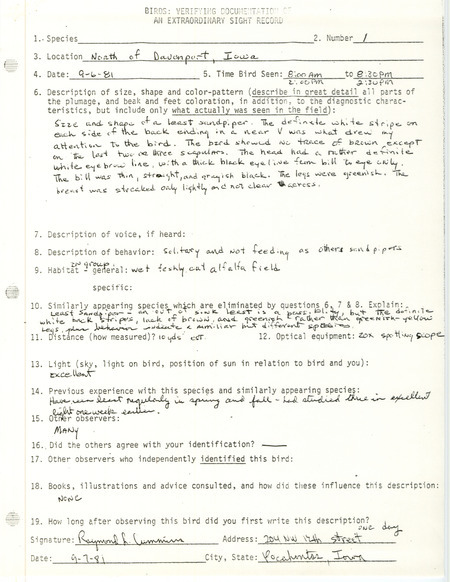 BIRDS: VERIFYING DOCUMENTATION OF
AN EXTRAORDINARY SIGHT RECORD
1. Species 2. Number 1
3. Location North of Davenport, Iowa
4. Date: 9-6-81 5. Time Bird Seen: 8:00 AM to 8:30 PM
2:00 PM 2:30 PM
6. Description of size, shape and color-pattern (describe in great detail all parts of
the plumage, and beak and feet coloration, in addition, to the diagnostic charac-
teristics, but include only what actually was seen in the field):
Size and shape of a least sandpiper. The definite white stripe on
each side of the back ending in a near V was what drew my
attention to the bird. The bird showed no trace of brown except
on the last two or three scapulars. The head had a rather definite
white eyebrow line, with a thick black eyeline from bill to eye only.
The bill was thin, straight, and grayish black. The legs were greenish. The
breast was streaked only lightly and not clear across.
7. Description of voice, if heard:
8. Description of behavior: Solitary and not feeding as other sandpipers
in group.
9. Habitat - general: wet freshly cut alfalfa field
specific:
10. Similarly appearing species which are eliminated by questions 6, 7 & 8. Explain:
Least Sandpiper - an out of sink least is a possibility, but the definite
white back stripes, lack of brown, and greenish rather than greenish-yellow
legs, plus behavior indicate a familiar but different species.
11. Distance (how measured)? 10 yds est 12. Optical equipment: 20x spotting scope
13. Light (sky, light on bird, position of sun in relation to bird and you):
Excellent
14. Previous experience with this species and similarly appearing species:
Have seen least regularly in spring and fall - had studied three in excellent
light one week earlier.
15. Other observers:
Many
16. Did the others agree with your identification? —
17. Other observers who independently identified this bird:
18. Books, illustrations and advice consulted, and how did these influence this description:
None
19. How long after observing this bird did you first write this description?
one day
Signature: Raymond L. Cummins Address: 204 NW 12th street
Date: 9-7-81 City, State: Pocahontas, Iowa